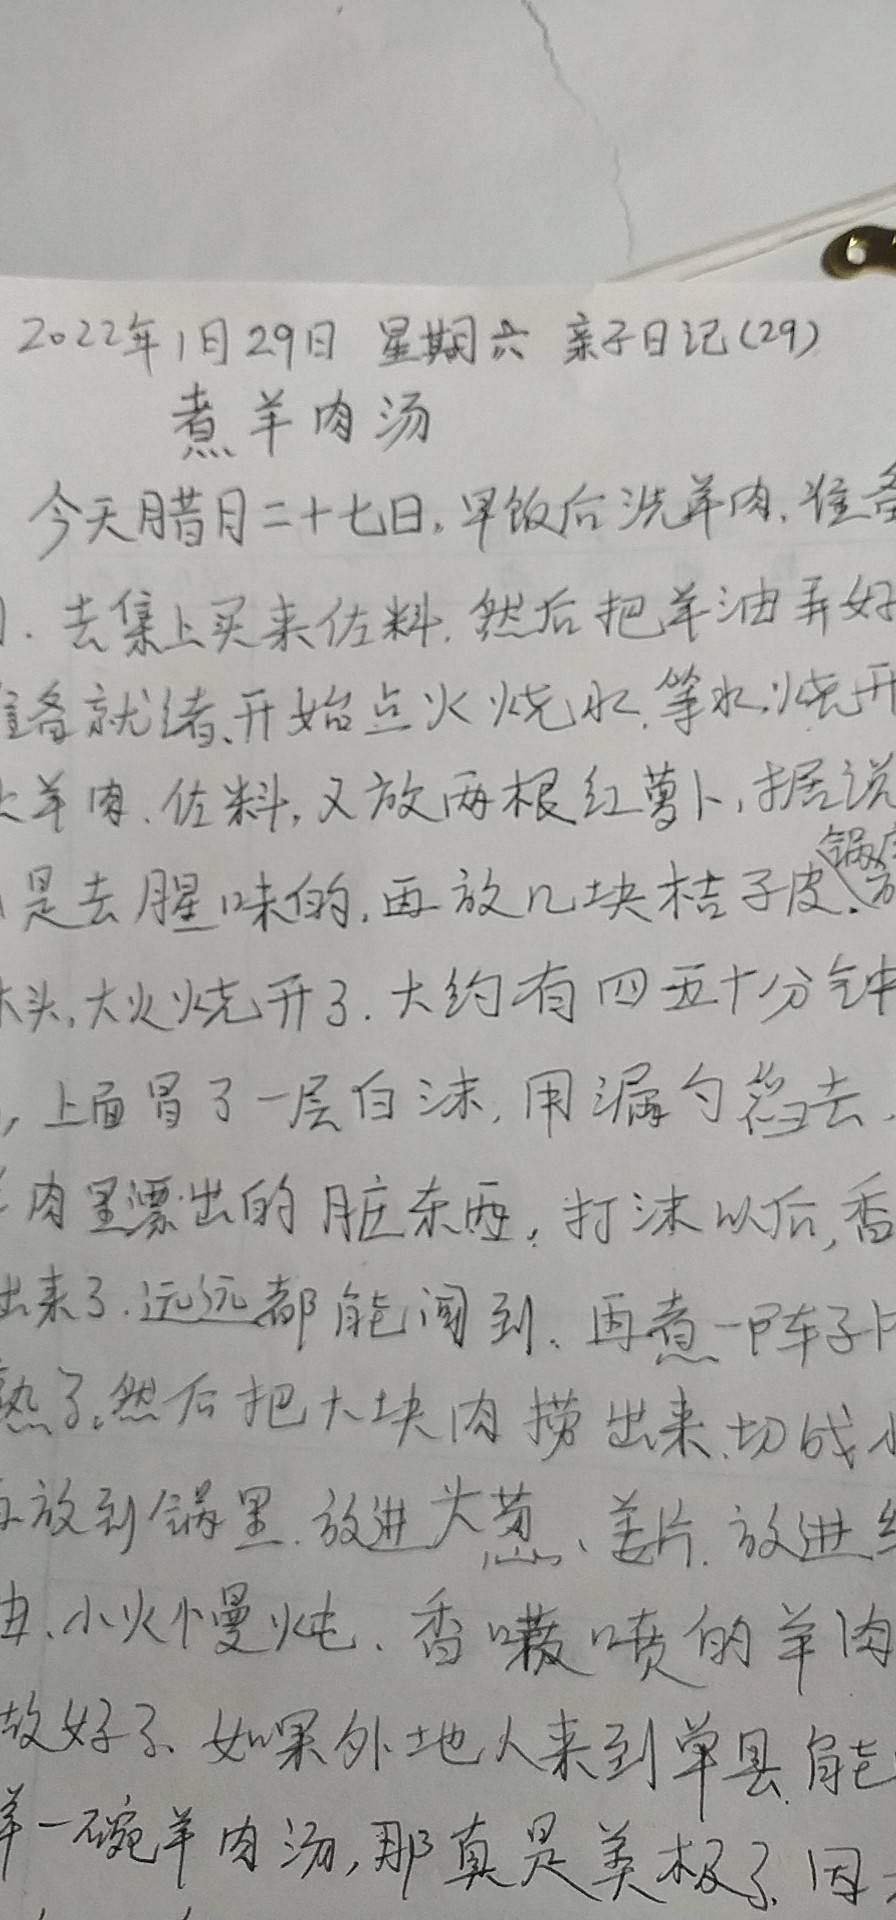 2022年1月29日 星期六 亲子日记(29)
煮羊肉汤
今天腊月二十七日。早饭后洗羊肉、准备
去集上买来佐料.然后把羊油弄好
准备就绪、开始点火烧水.等水烧开
羊肉、佐料,又放两根红萝卜,据说
是去腥味的.再放几块桔子皮.
锅底
木头,大火烧开了.大约有四五十分钟
,上面冒了一层白沫,用漏勺舀去、
肉里漂出的脏东西,打沫以后,香
出来了.远远都能闻到.再煮一阵子
熟了。然后把大块肉捞出来.切成小
放到锅里.放进大葱、姜片.放进
、小火慢炖、香喷喷的羊肉
做好了、如果外地人来到单县.能
一碗羊肉汤,那真是美极了、因